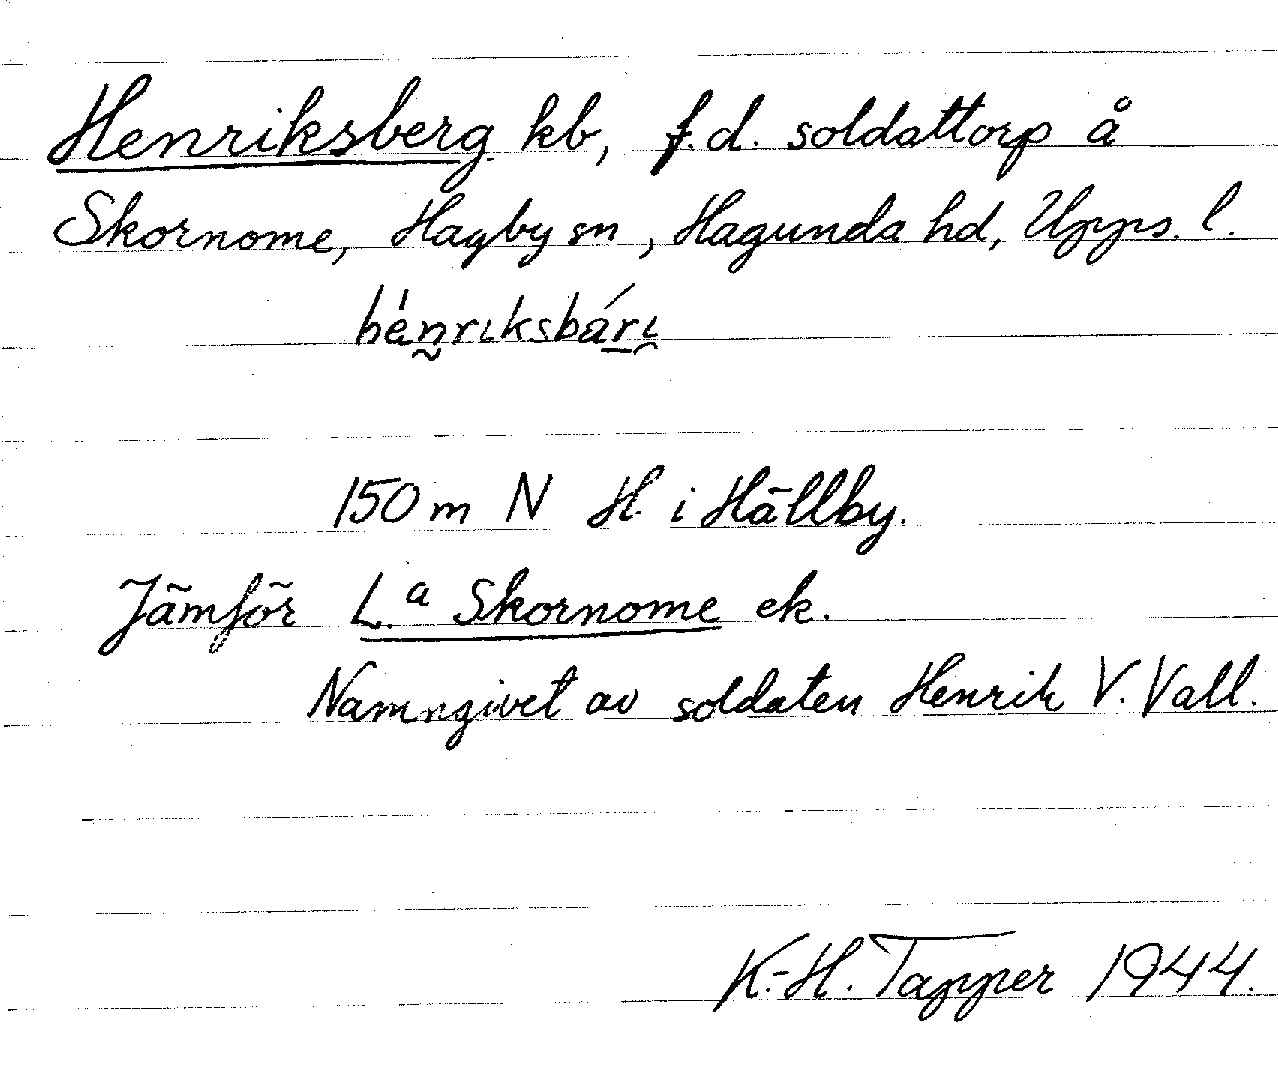 Henriksberg kb, f.d. soldattorp å
Skornome, Hagby sn, Hagunda hd, Upps. l.
hénriksbári
150 m N H i Hällby.
Jämför L.a Skornome ek.
Namngivet av soldaten Henrik V. Vall.
K.-H. Tapper 1944.